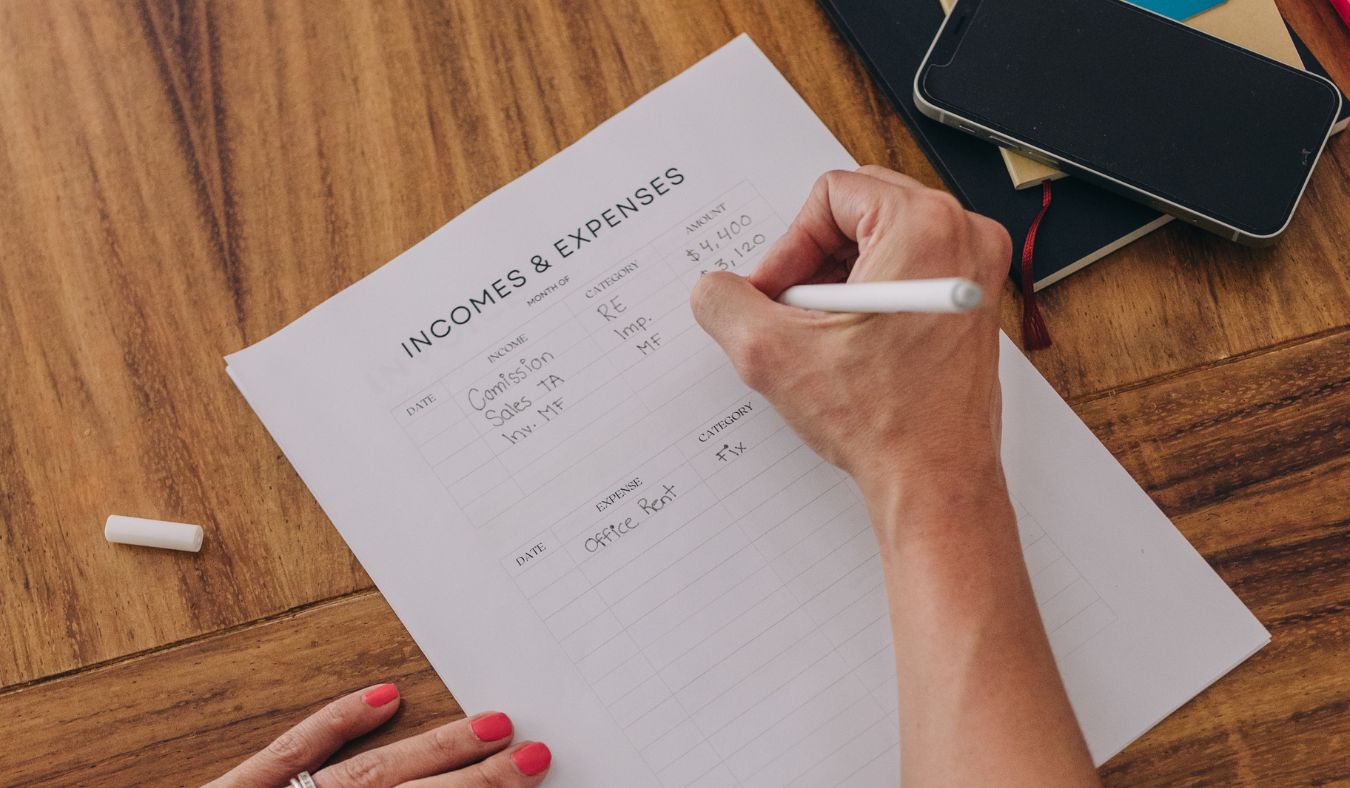 INCOMES & EXPENSES
MONTH OF
DATE INCOME CATEGORY AMOUNT
Comission RE $4,400
Sales TA Imp. $3,120
Inv. MF MF
DATE EXPENSE CATEGORY
Office Rent Fix